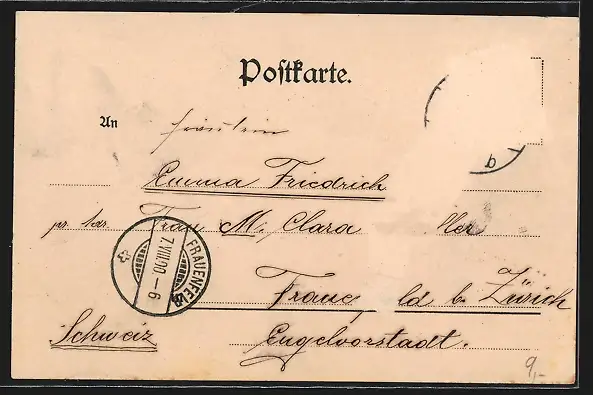 Postkarte.
An Fräulein
Emma Friedrich
pr. Adr. Frau M. Clara
Frauenfeld b. Zürich
Schweiz Engelvorstadt.
FRAUENFELD
7.VIII.00–6
9,-